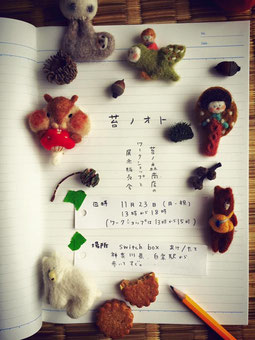 苔ノオト
苔ノ森商店の
ワークショップと
展示販売会
日時 11月23日(日・祝)
13時から18時
(ワークショップは13時から15時)
場所 switch box あけ/たて
神奈川県 白楽駅から
歩いてすぐ。